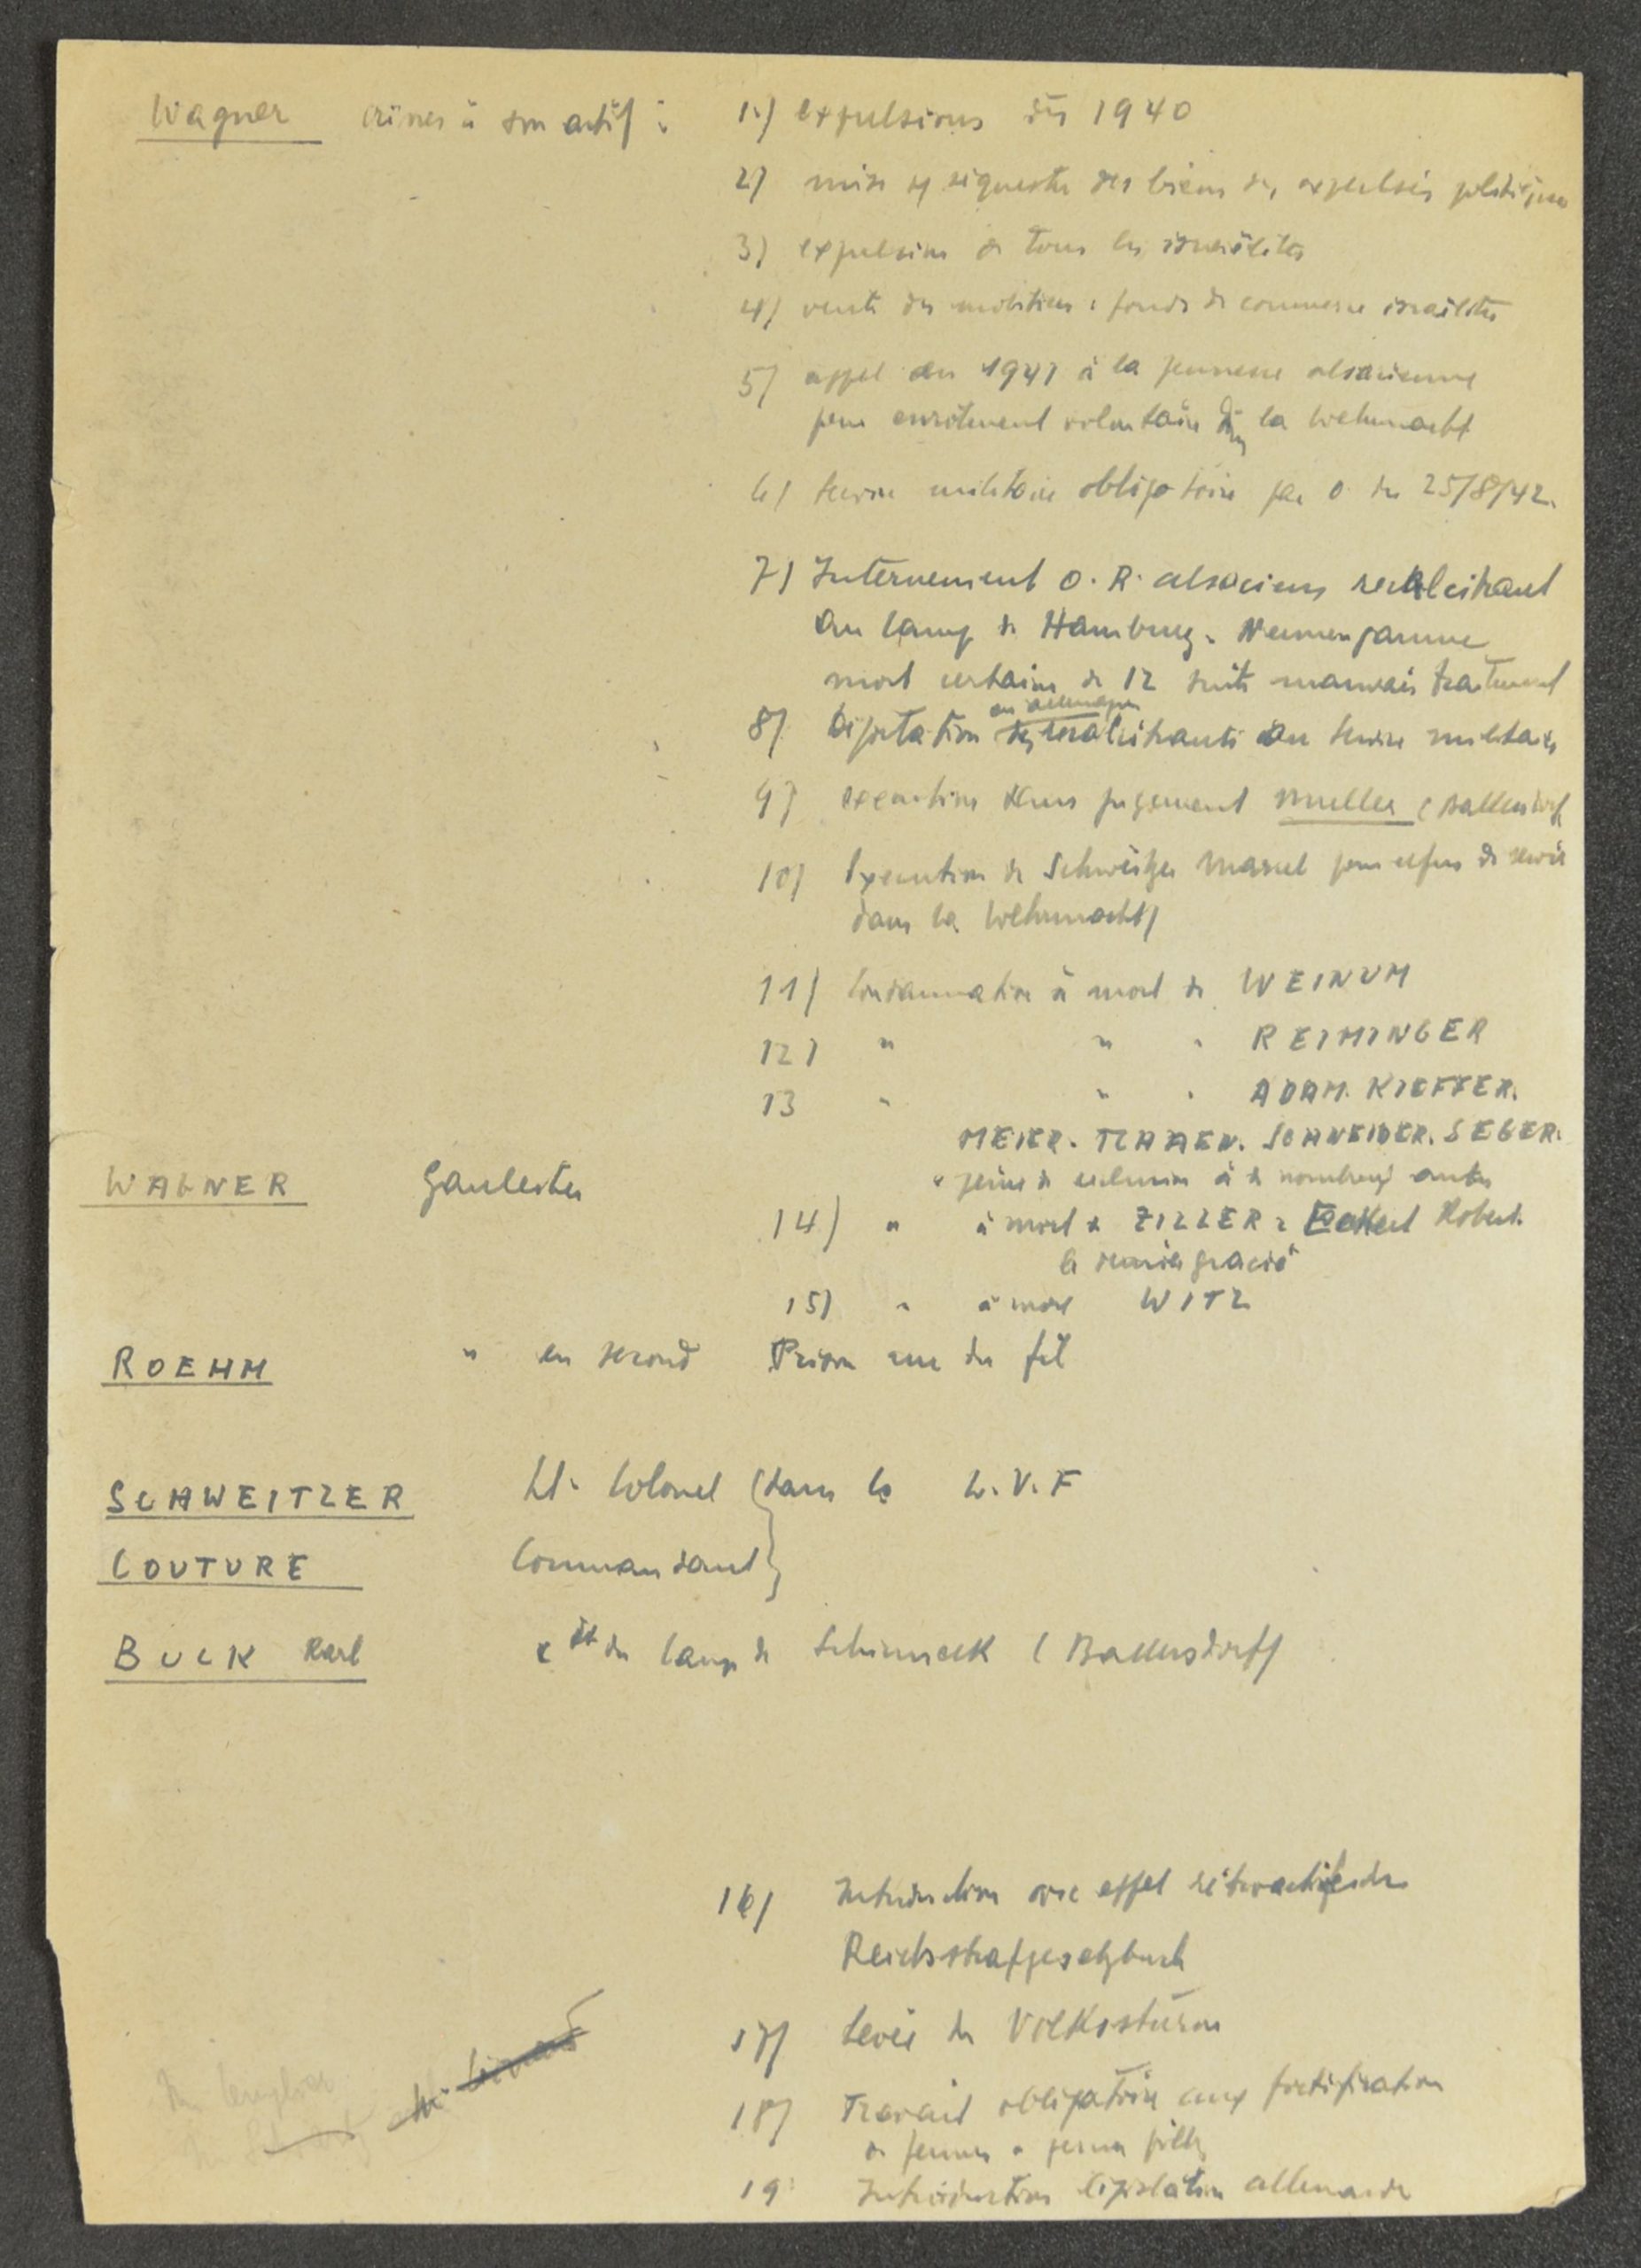 Wagner crimes à son actif : 1.) expulsions dès 1940
2) mise s/ séquestre des biens des expulsés politiques
3) expulsion de tous les israélites
4) vente des mobiliers, fonds de commerce israélites
5) appel en 1941 à la jeunesse alsacienne
pour enrôlement volontaire ds la Wehrmacht
6) service militaire obligatoire par O du 25/8/42.
7) Internement O.R. alsaciens recalcitrant
au camp de Hamburg. Neuengamme
mort certaine de 12 suite mauvais traitement
en allemagne
8) Déportation des recalcitrants au service militaire
9) execution sans jugement Mueller (Ballersdorf
10) Execution de Schweitzer Marcel pour refus de servir
dans la Wehrmacht)
11) Condamnation à mort de WEINUM
12) " " " REIMINGER
13 " " " ADAM. KIEFFER.
MEIER. SCHNEIDER. SEGER.
" peine de à de nombreux autres
WAGNER Gauleiter
14) " à mort de ZILLER & Eckert Robert.
le dernier gracié
15) " à mort WITZ
ROEHM " en second Prison rue du fil
SCHWEITZER Lt. Colonel (dans la L.V.F
COUTURE Commandant
BUCK Karl Ct du camp de Schirmeck (Ballersdorf)
16) Introduction avec effet rétroactif du
Reichsstrafgesetzbuch
17) Levée du Volkssturm
18) Travail obligatoire aux fortification
de femmes & jeunes filles
19 Introduction législation allemande